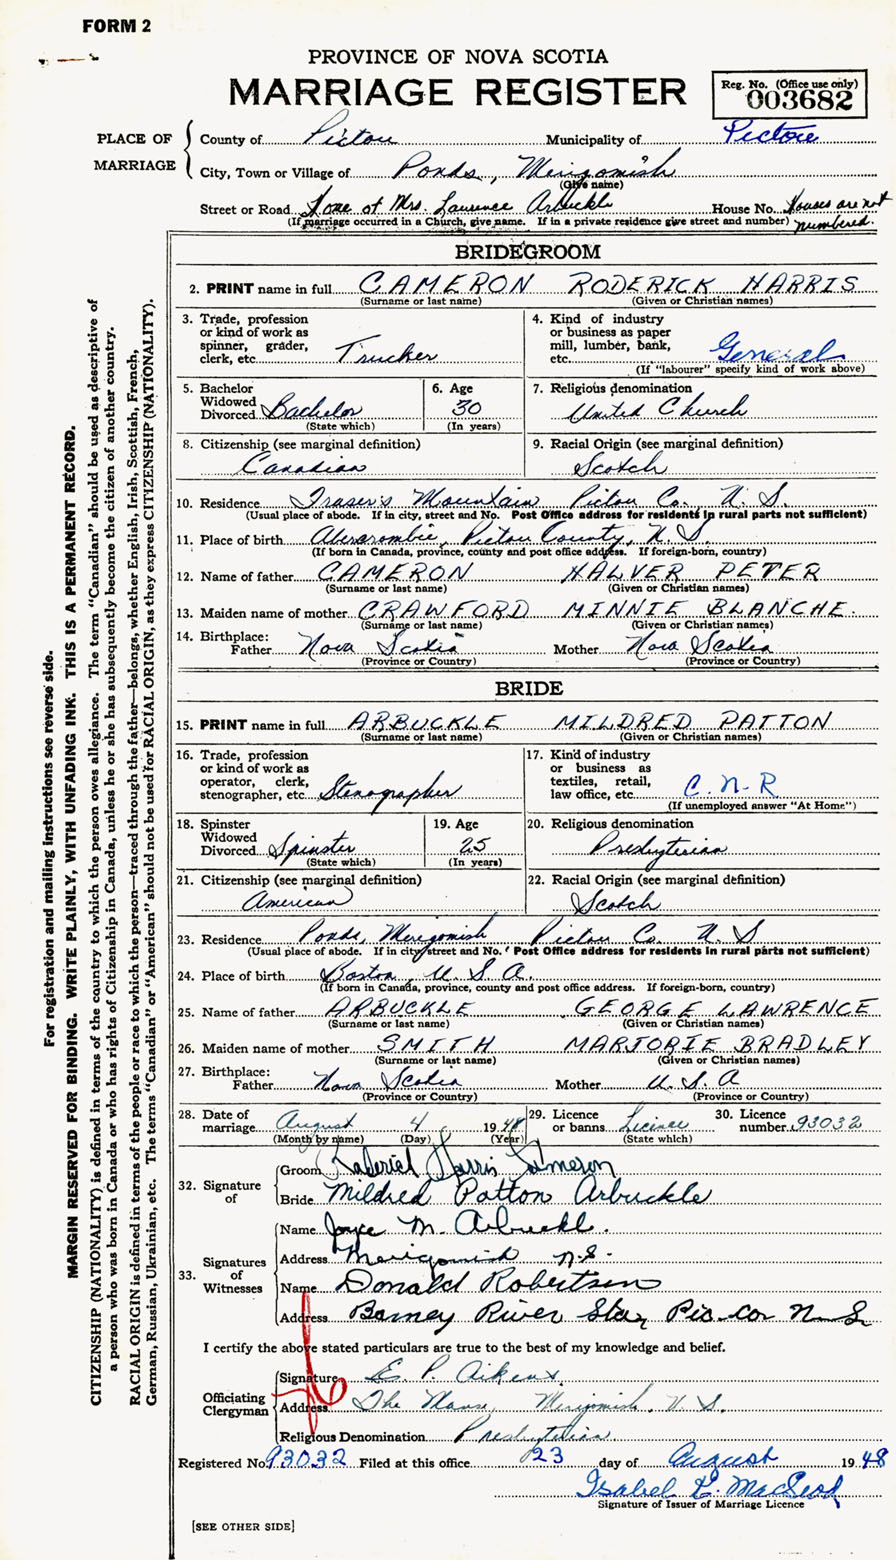 FORM 2
PROVINCE OF NOVA SCOTIA
MARRIAGE REGISTER
Reg. No. (Office use only)
003682
PLACE OF MARRIAGE
County of Pictou Municipality of Pictou
City, Town or Village of Ponds, Merigomish
(Give name)
Street or Road Home of Mrs. Laurence Arbuckle House No. Houses are not numbered.
(If marriage occurred in a Church, give name. If in a private residence give street and number)
BRIDEGROOM
2. PRINT name in full CAMERON RODERICK HARRIS
(Surname or last name) (Given or Christian names)
3. Trade, profession or kind of work as spinner, grader, clerk, etc. Trucker
4. Kind of industry or business as paper mill, lumber, bank, etc. General
(If "labourer" specify kind of work above)
5. Bachelor Widowed Divorced Bachelor
(State which)
6. Age 30
(In years)
7. Religious denomination
United Church
8. Citizenship (see marginal definition)
Canadian
9. Racial Origin (see marginal definition)
Scotch
10. Residence Fraser's Mountain Pictou Co. N. S.
(Usual place of abode. If in city, street and No. Post Office address for residents in rural parts not sufficient)
11. Place of birth Abercrombie, Pictou County, N. S.
(If born in Canada, province, county and post office address. If foreign-born, country)
12. Name of father CAMERON HALVER PETER
(Surname or last name) (Given or Christian names)
13. Maiden name of mother CRAWFORD MINNIE BLANCHE.
(Surname or last name) (Given or Christian names)
14. Birthplace:
Father Nova Scotia Mother Nova Scotia
(Province or Country) (Province or Country)
BRIDE
15. PRINT name in full ARBUCKLE MILDRED PATTON
(Surname or last name) (Given or Christian names)
16. Trade, profession or kind of work as operator, clerk, stenographer, etc. Stenographer
17. Kind of industry or business as textiles, retail, law office, etc. C. N-R
(If unemployed answer "At Home")
18. Spinster Widowed Divorced Spinster
(State which)
19. Age 25
(In years)
20. Religious denomination
Presbyterian
21. Citizenship (see marginal definition)
American
22. Racial Origin (see marginal definition)
Scotch
23. Residence Ponds, Merigomish Pictou Co. N. S
(Usual place of abode. If in city, street and No. Post Office address for residents in rural parts not sufficient)
24. Place of birth Boston, U. S. A.
(If born in Canada, province, county and post office address. If foreign-born, country)
25. Name of father ARBUCKLE GEORGE LAWRENCE
(Surname or last name) (Given or Christian names)
26. Maiden name of mother SMITH MARJORIE BRADLEY
(Surname or last name) (Given or Christian names)
27. Birthplace:
Father Nova Scotia Mother U. S. A
(Province or Country) (Province or Country)
28. Date of marriage August 4 1948
(Month by name) (Day) (Year)
29. Licence or banns Licence
(State which)
30. Licence number 93032
32. Signature of
Groom Roderick Harris Cameron
Bride Mildred Patton Arbuckle
33. Signatures of Witnesses
Name Joyce M. Arbuckle.
Address Merigomish N.S.
Name Donald Robertson
Address Barney River Sta, Pic. Co. N. S.
I certify the above stated particulars are true to the best of my knowledge and belief.
Officiating Clergyman
Signature E. P. Aikens.
Address The Manse, Merigomish, N. S.
Religious Denomination Presbyterian
Registered No. 93032 Filed at this office 23 day of August 1948
Isabel E. MacLeod
Signature of Issuer of Marriage Licence
[SEE OTHER SIDE]
For registration and mailing instructions see reverse side.
MARGIN RESERVED FOR BINDING. WRITE PLAINLY, WITH UNFADING INK. THIS IS A PERMANENT RECORD.
CITIZENSHIP (NATIONALITY) is defined in terms of the country to which the person owes allegiance. The term "Canadian" should be used as descriptive of
a person who was born in Canada or who has rights of Citizenship in Canada, unless he or she has subsequently become the citizen of another country.
RACIAL ORIGIN is defined in terms of the people or race to which the person—traced through the father—belongs, whether English, Irish, Scottish, French,
German, Russian, Ukrainian, etc. The terms "Canadian" or "American" should not be used for RACIAL ORIGIN, as they express CITIZENSHIP (NATIONALITY).